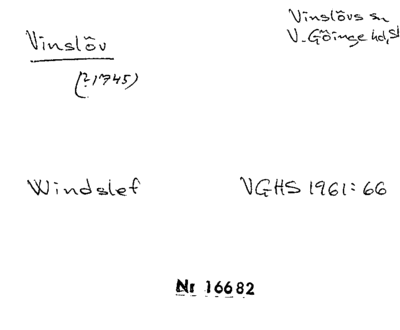 Vinslöv
Vinslövs sn
V. Göinge hd, Sk
(? 1745)
Windslef
VGHS 1961: 66
Nr 16682